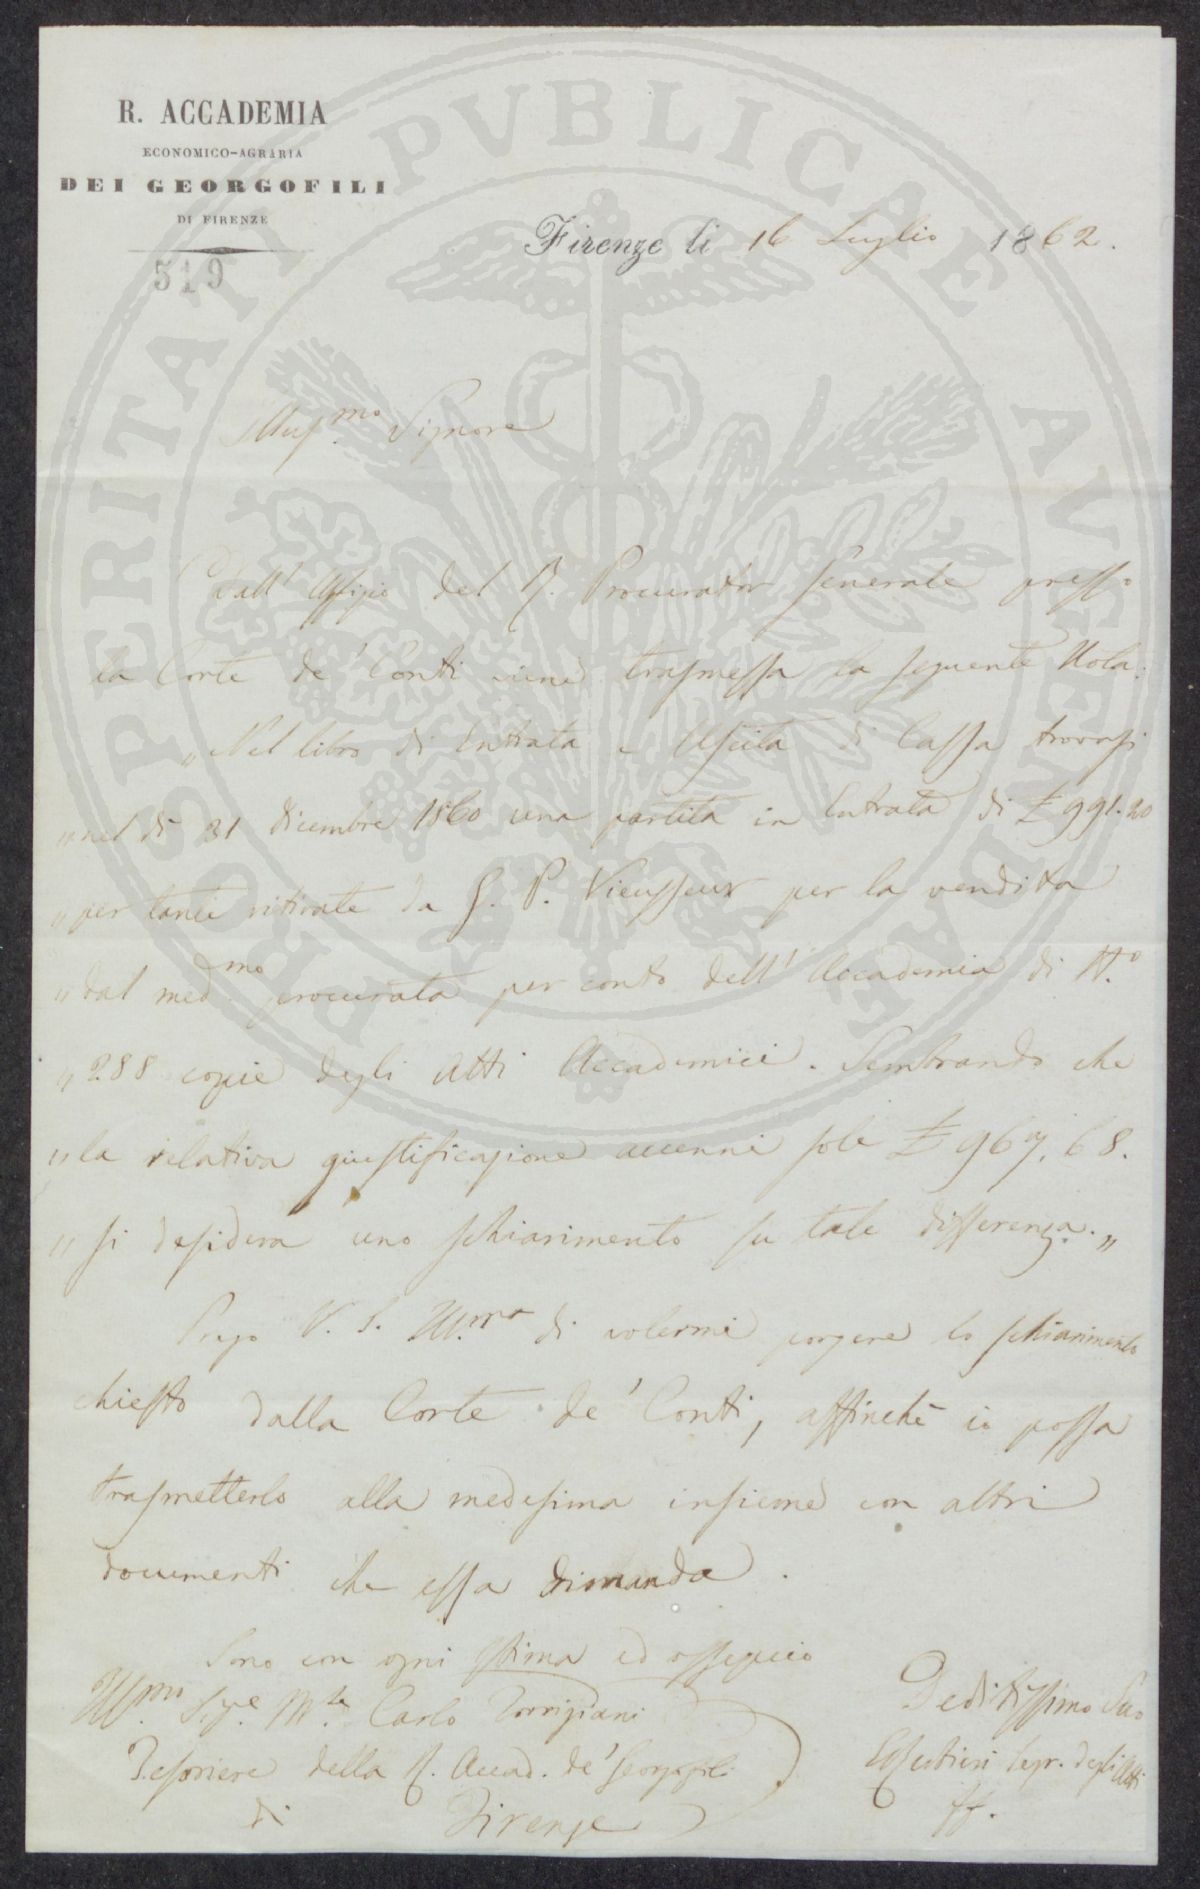 R. ACCADEMIA
ECONOMICO-AGRARIA
DEI GEORGOFILI
DI FIRENZE
519
Firenze li 16 Luglio 1862.
PROSPERITATI PVBLICAE AVGENDAE
Illus.mo Signore
Dall' Uffizio del R. Procurator Generale presso
la Corte de' Conti viene trasmessa la seguente Nota:
„ Nel libro di Entrata e Uscita di Cassa trovasi
„ nel dì 31 dicembre 1860 una partita in Entrata di £ 991.20
„ per tante ritirate da G. P. Vieusseux per la vendita
„ dal med.mo procurata per conto dell' Accademia di N.o
„ 288 copie degli Atti Accademici. Sembrando che
„ la relativa giustificazione accenni sole £ 967.68.
„ si desidera uno schiarimento su tale differenza. „
Prego V. S. Ill.ma di volermi porgere lo schiarimento
chiesto dalla Corte de' Conti, affinchè io possa
trasmetterlo alla medesima insieme con altri
documenti che essa dimanda.
Sono con ogni stima ed ossequio
Ill.mo Sig.e M.se Carlo Torrigiani
Tesoriere della R. Accad. de' Georgofili
di Firenze
Deditissimo Suo
Segr. degli Atti
ff.